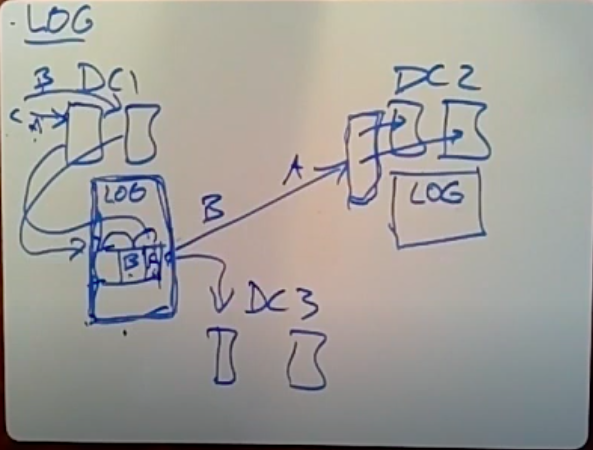 · LOG
B DC1
C A
LOG
B A
B
A
DC2
LOG
DC3